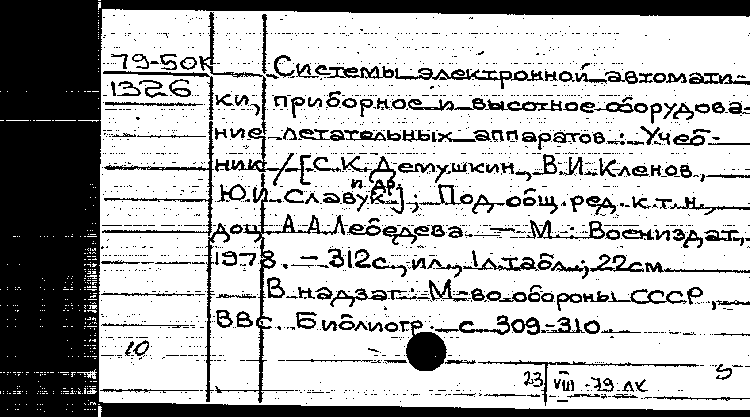 79-50К
1326
Системы электронной автомати-
ки, приборное и высотное оборудова
ние летательных аппаратов : Учеб-
ник / [С.К. Демушкин, В.И. Кленов,
Ю.И. Славук и др.]; Под общ. ред. к.т.н.,
доц. А.А. Лебедева. — М. : Воениздат,
1978. – 312с., ил., 1 л. табл.; 22см.
В надзаг: М-во обороны СССР,
ВВС. Библиогр. с. 309-310.
10
23 VIII -79 ЛК